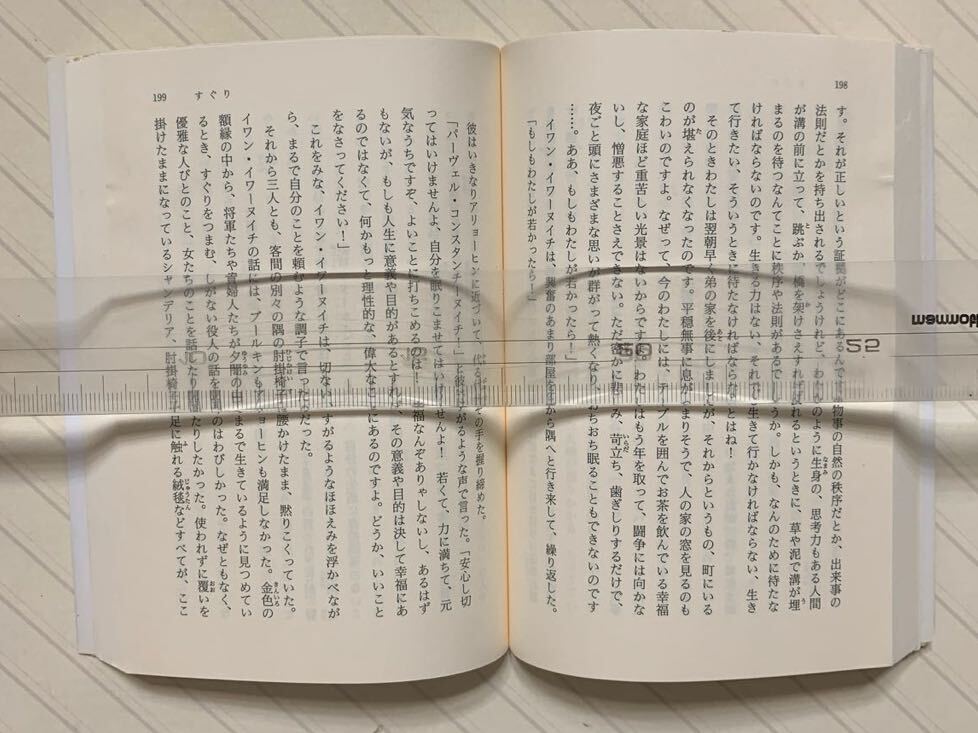 198
す。それが正しいという証拠がどこにあるんです。物事の自然の秩序だとか、出来事の
法則だとかを持ち出されるでしょうけれど、わたしのように生身の、思考力もある人間
が溝の前に立って、跳ぶか、橋を架けさえすれば渡れるというときに、草や泥で溝が埋
まるのを待つなんてことに秩序や法則があるでしょうか。しかも、なんのために待たな
ければならないのです。生きる力はない、それでも生きて行かなければならない、生き
て行きたい、そういうときに待たなければならないとはね！
そのときわたしは翌朝早く弟の家を後にしましたが、それからというもの、町にいる
のが堪えられなくなったのです。平穏無事に息がつまりそうで、人の家の窓を見るのも
こわいのですよ。なぜって、今のわたしには、テーブルを囲んでお茶を飲んでいる幸福
な家庭ほど重苦しい光景はないからですよ。わたしはもう年を取って、闘争には向かな
いし、憎悪することさえできない。ただ密かに悲しみ、苛立ち、歯ぎしりするだけで、
夜ごと頭にさまざまな思いが群がって熱くなり、おちおち眠ることもできないのです
……。ああ、もしもわたしが若かったら！」
イワン・イワーヌイチは、興奮のあまり部屋を隅から隅へと行き来して、繰り返した。
「もしもわたしが若かったら！」
199 すぐり
彼はいきなりアリョーヒンに近づいて、代る その手を握り締めた。
「パーヴェル・コンスタンチーヌイチ！」と彼は がるような声で言った。「安心し切
ってはいけませんよ、自分を眠りこませてはいけませんよ！ 若くて、力に満ちて、元
気なうちですぞ、よいことに打ちこめるのは！ 幸福なんぞありゃしないし、あるはず
もないが、もしも人生に意義や目的があるとすれば、その意義や目的は決して幸福にあ
るのではなくて、何かもっと理性的な、偉大なことにあるのですよ。どうか、いいこと
をなさってください！」
これをみな、イワン・イワーヌイチは、切ない、すがるようなほほえみを浮かべなが
ら、まるで自分のことを頼むような調子で言ったのだった。
それから三人とも、客間の別々の隅の肘掛椅子に腰かけたまま、黙りこくっていた。
イワン・イワーヌイチの話には、ブールキンもアリョーヒンも満足しなかった。金色の
額縁の中から、将軍たちや貴婦人たちが夕闇の中でまるで生きているように見つめてい
るとき、すぐりをつまむ、しがない役人の話を聞くのはわびしかった。なぜともなく、
優雅な人びとのこと、女たちのことを話したり聞いたりしたかった。使われずに覆いを
掛けたままになっているシャンデリア、肘掛椅子、足に触れる絨毯などすべてが、ここ
mammoth
50
52